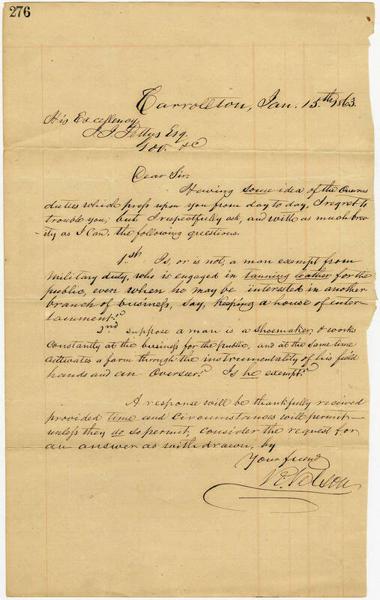 276
Carrollton, Jan. 15th 1863.
His Excellency
J. J. Pettus Esq.
Gov. &c
Dear Sir:
Having some idea of the onerous
duties which press upon you from day to day, I regret to
trouble you, but I respectfully ask, and with as much brev-
ity as I can, the following questions.
1st Is, or is not, a man exempt from
military duty, who is engaged in tanning leather for the
public, even when he may be interested in another
branch of business, say, keeping a house of enter-
tainment?
2nd Suppose a man is a shoemaker, & works
constantly at the business for the public, and at the same time
cultivates a farm through the instrumentality of his field
hands and an overseer? Is he exempt?
A response will be thankfully received
provided time and circumstances will permit—
unless they do so permit, consider the request for
an answer as withdrawn, by
Your friend